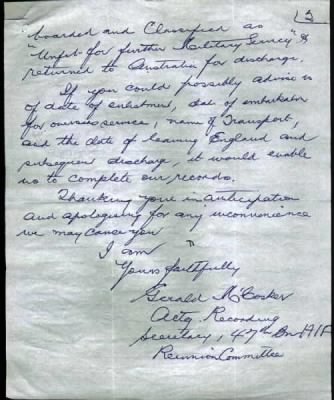 3
boarded and Classified as
"Unfit for further Military Service" &
returned to Australia for discharge.
If you could possibly advise us
of date of enlistment, date of embarkation
for overseas service, name of Transport,
and the date of leaving England and
subsequent discharge, it would enable
us to complete our records.
Thanking you in anticipation
and apologising for any inconvenience
we may cause you
I am
Yours faithfully
Gerald McCosker
Actg Recording
Secretary, 47th Bn AIF
Reunion Committee